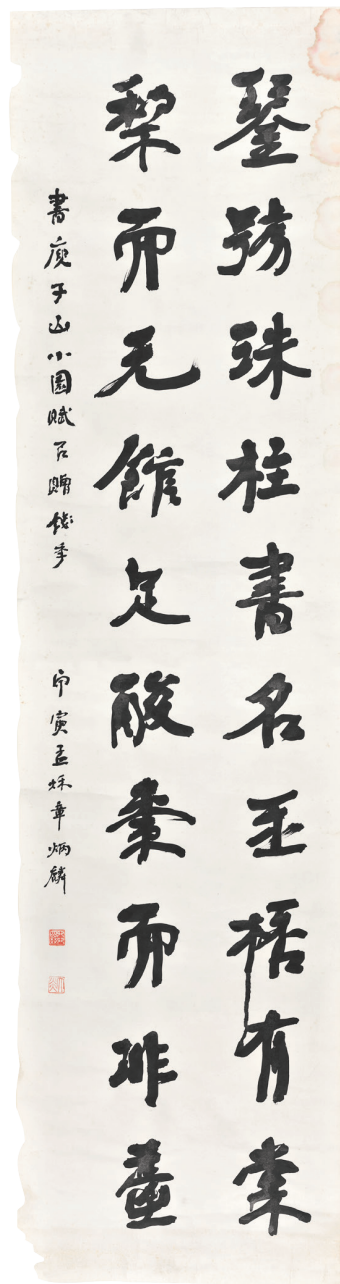 琴號珠柱書名玉桮有棠
棃而无館足酸棗而非臺
書庾子山小園賦㠯贈季 甲寅孟秌章炳麟